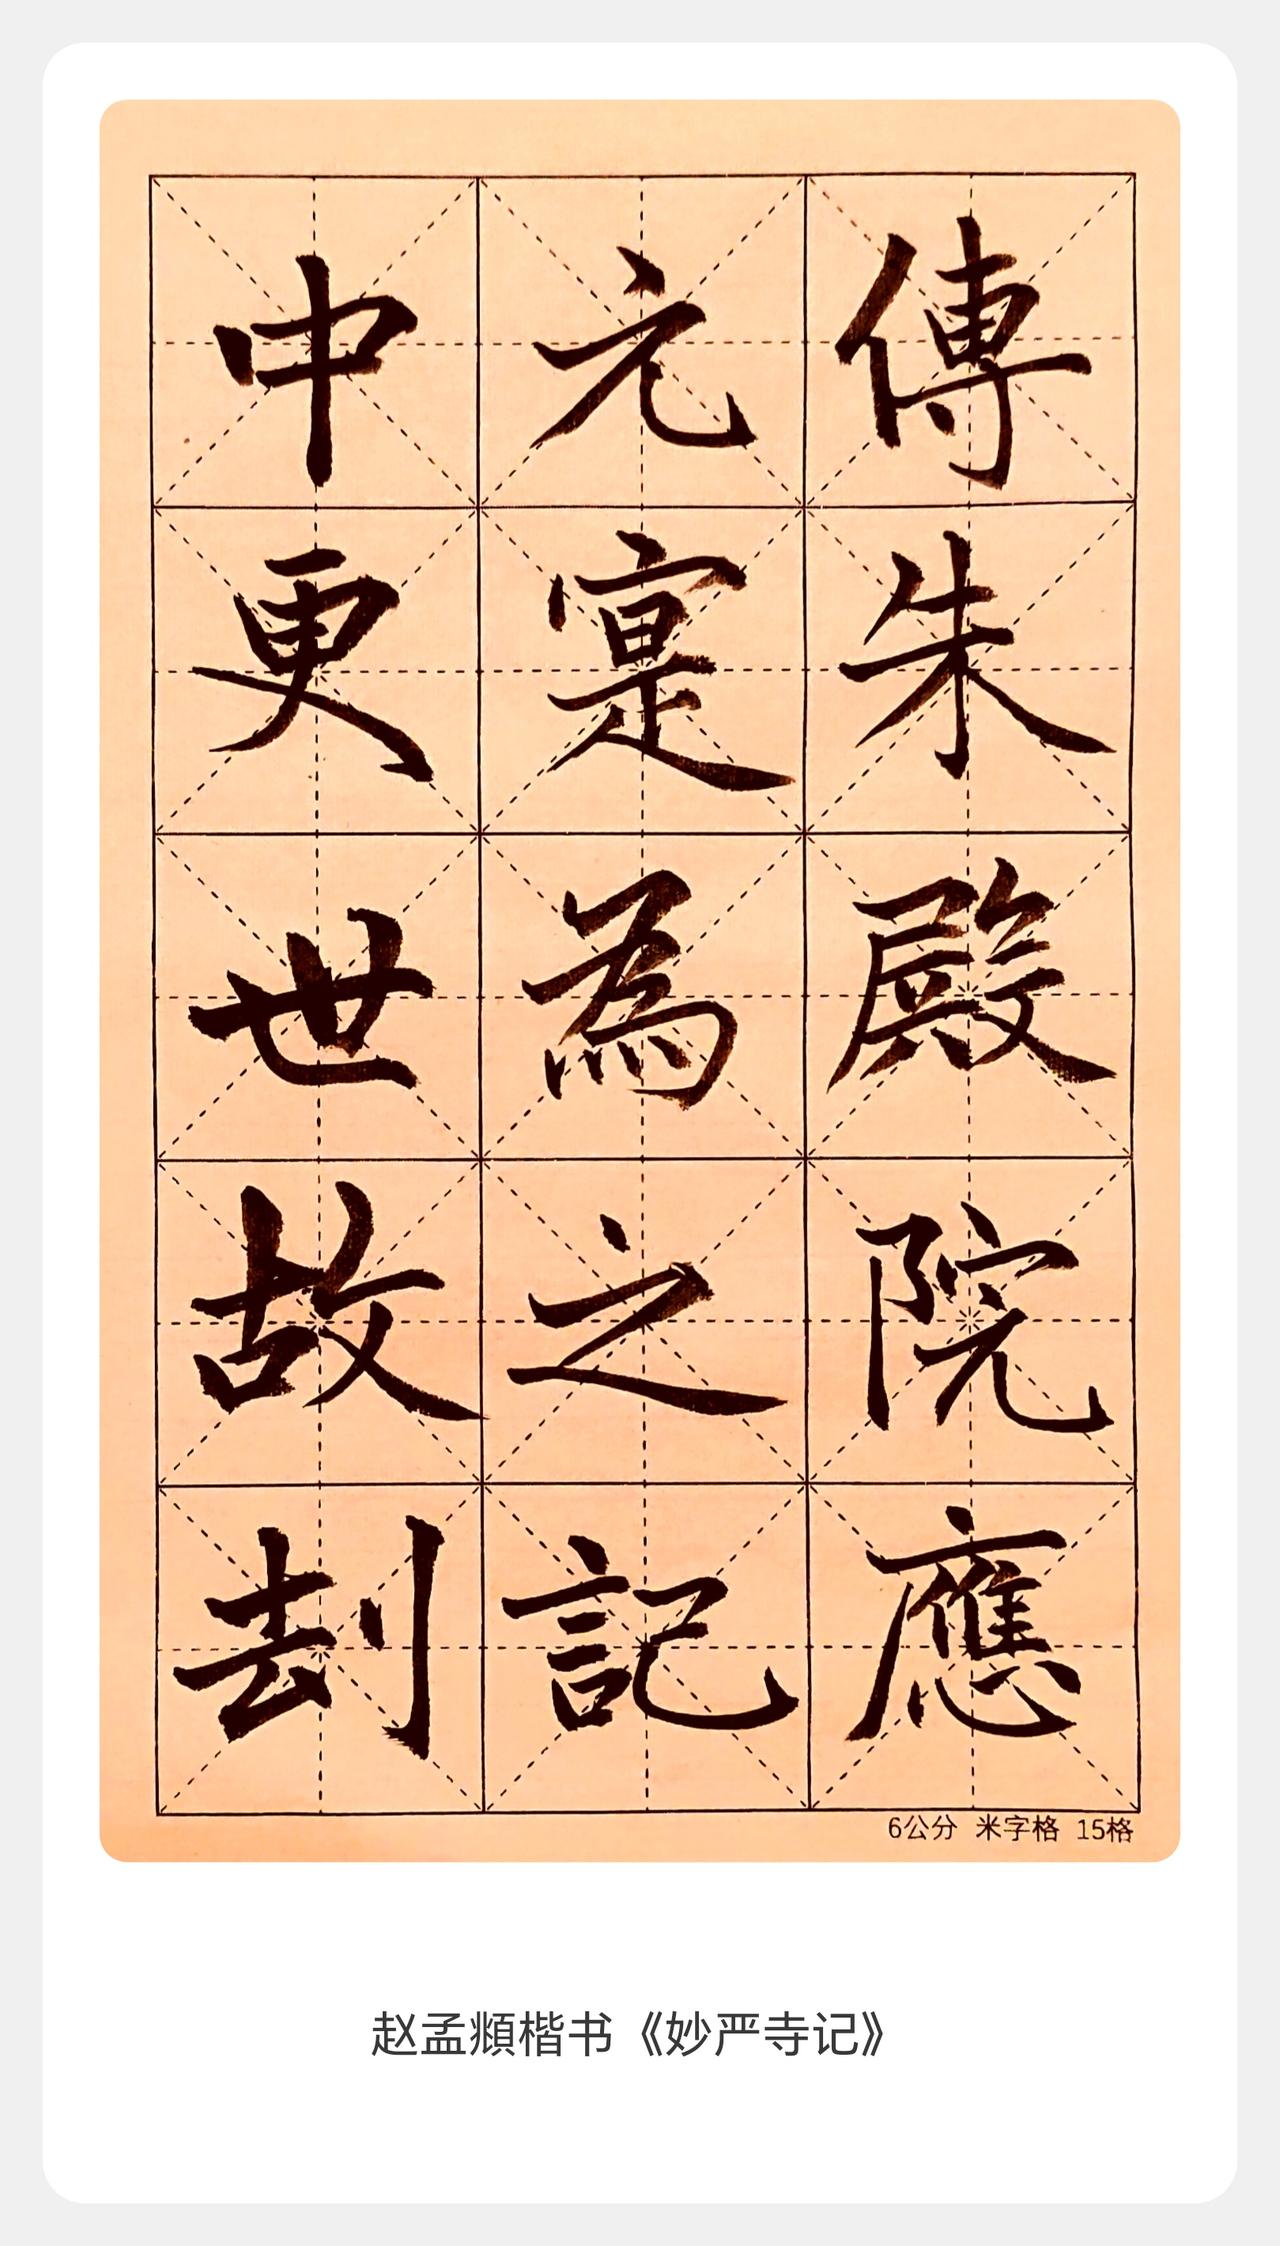 傳朱殿院應
元寔為之記
中更世故刦
6公分 米字格 15格
赵孟頫楷书《妙严寺记》